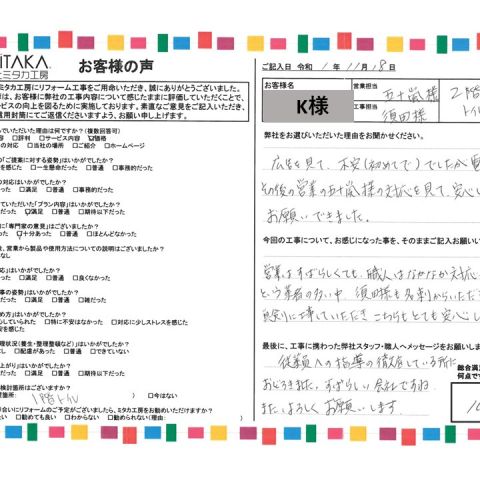 iTAKA
ミタカ工房
お客様の声
ミタカ工房にリフォーム工事をご用命いただき、誠にありがとうございました。
は、お客様に弊社の工事内容について感じたままに評価していただくことで、
ービスの向上を図るために実施しております。率直なご意見をご記入いただき、
封筒にてご返信くださいますよう、お願い申し上げます。
んでいただいた理由は何ですか？（複数回答可）
容 □評判 □サービス内容 価格
の対応 □当社の場所 □ご紹介 □ホームページ
の「ご提案に対する姿勢」はいかがでしたか？
を感じた □一生懸命だった □普通 □事務的だった
の対応はいかがでしたか？
た □満足 □普通 □事務的だった
ていただいた「プラン内容」はいかがでしたか？
った 満足 □普通 □期待以下だった
に「専門家の意見」はいかがでしたか？
った 十分あった □普通 □ほとんどなかった
、営業から製品や使用方法についての説明はございましたか？
なし
の対応はいかがでしたか？
った □満足 □普通 □良くなかった
事の姿勢」はいかがでしたか？
った □満足 □普通 □雑だった
め方」はいかがでしたか？
心していられた □特に不安はなかった □対応に少しストレスを感じた
安を感じた
環状況（養生・整理整頓など）」はいかがでしたか？
なし □配慮があった □できていない
りはいかがでしたか？
った □満足 □普通 □期待以下だった
検討箇所はございますか？
箇所: 1階トイレ ) □今はない
合いにリフォームのご予定がございましたら、ミタカ工房をお勧めいただけますか？
い □勧めてもよい □わからない □勧められない（理由:
ご記入日 令和 1 年 11月 18日
お客様名
K様
営業担当
五十嵐様
工事担当
須田様
2階
トイレ
弊社をお選びいただいた理由をお聞かせください。
広告を見て、不安(初めてで)でしたが
その後の営業の五十嵐様の対応を見て、安心し
お願いできました。
今回の工事について、お感じになった事を、そのままご記入お願い
営業はすばらしくても、職人はなかなか対応
という業者の多い中、須田様も
工事していただき こちらもとても安心し
最後に、工事に携わった弊社スタッフ・職人へメッセージをお願いしま
従業員への指導の徹底している所に
おどろきました。すばらしい会社ですね
また、よろしくお願いします。
総合満
何点です
10